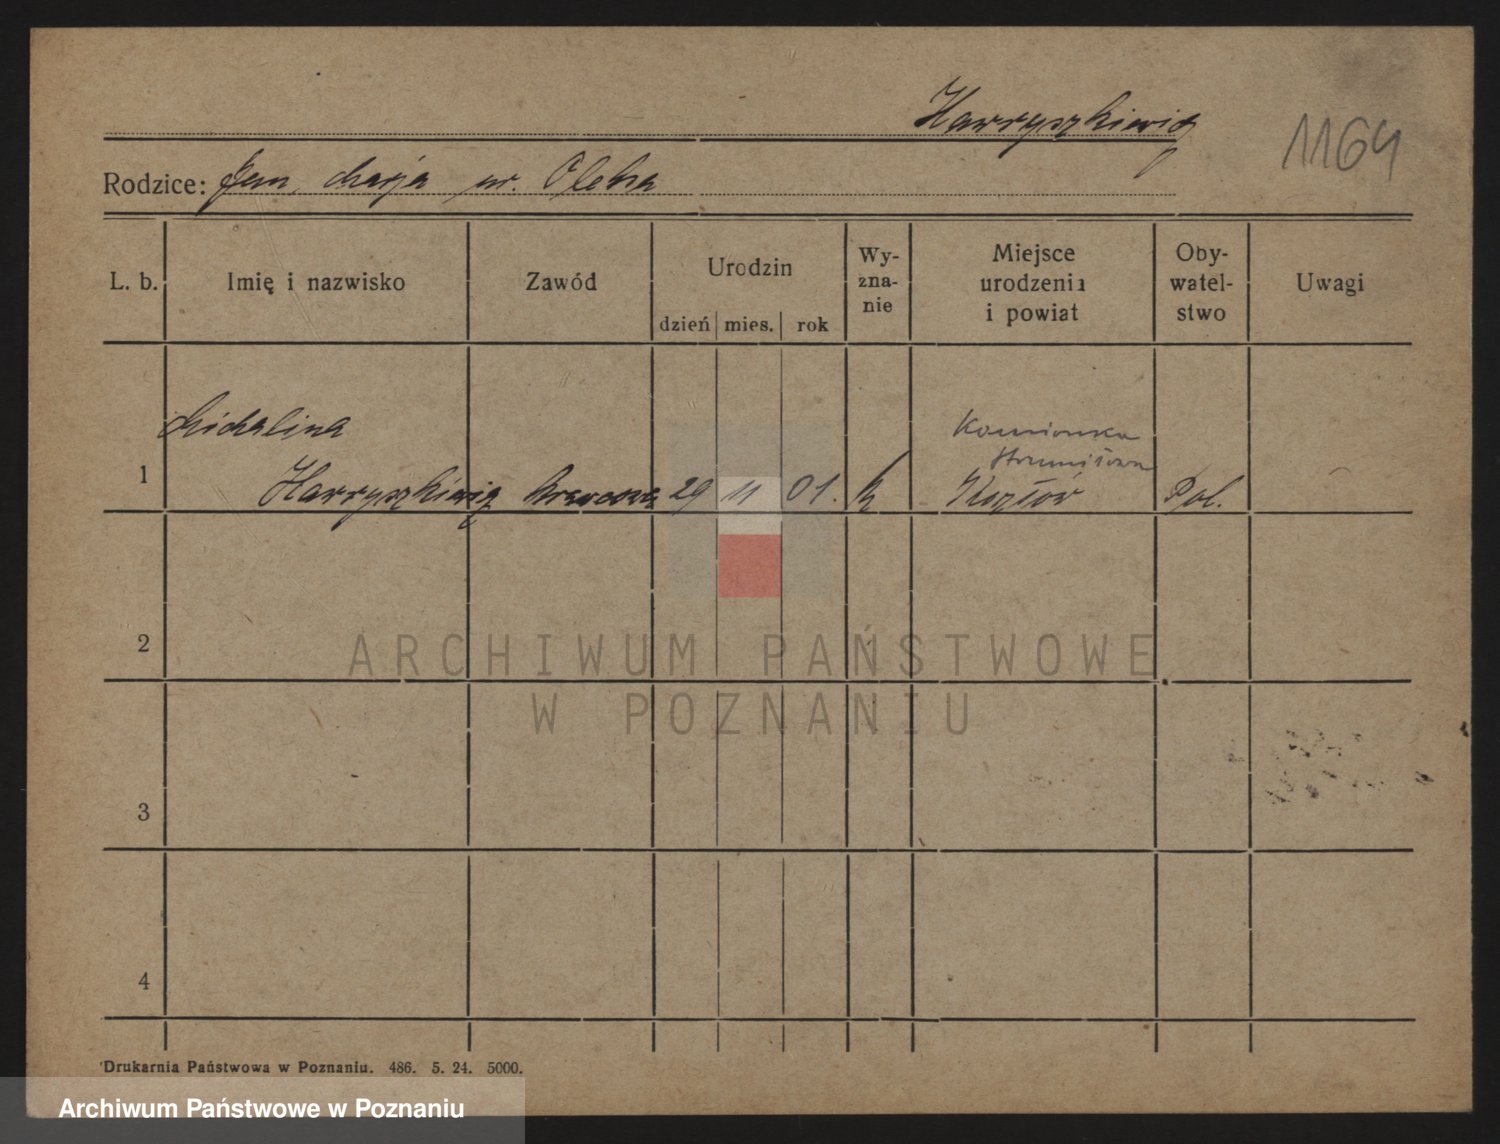 Hawryszkiewicz
1164
Rodzice: Jan, Marja ur. Oleksa
L. b.
Imię i nazwisko
Zawód
Urodzin
dzień mies. rok
Wy-
zna-
nie
Miejsce
urodzenia
i powiat
Oby-
watel-
stwo
Uwagi
1
Michalina
Hawryszkiewicz
29 11 01.
Kamionka
Strumiłowa
Kozłów
Pol.
2
3
4
ARCHIWUM PAŃSTWOWE
W POZNANIU
Drukarnia Państwowa w Poznaniu. 486. 5. 24. 5000.
Archiwum Państwowe w Poznaniu